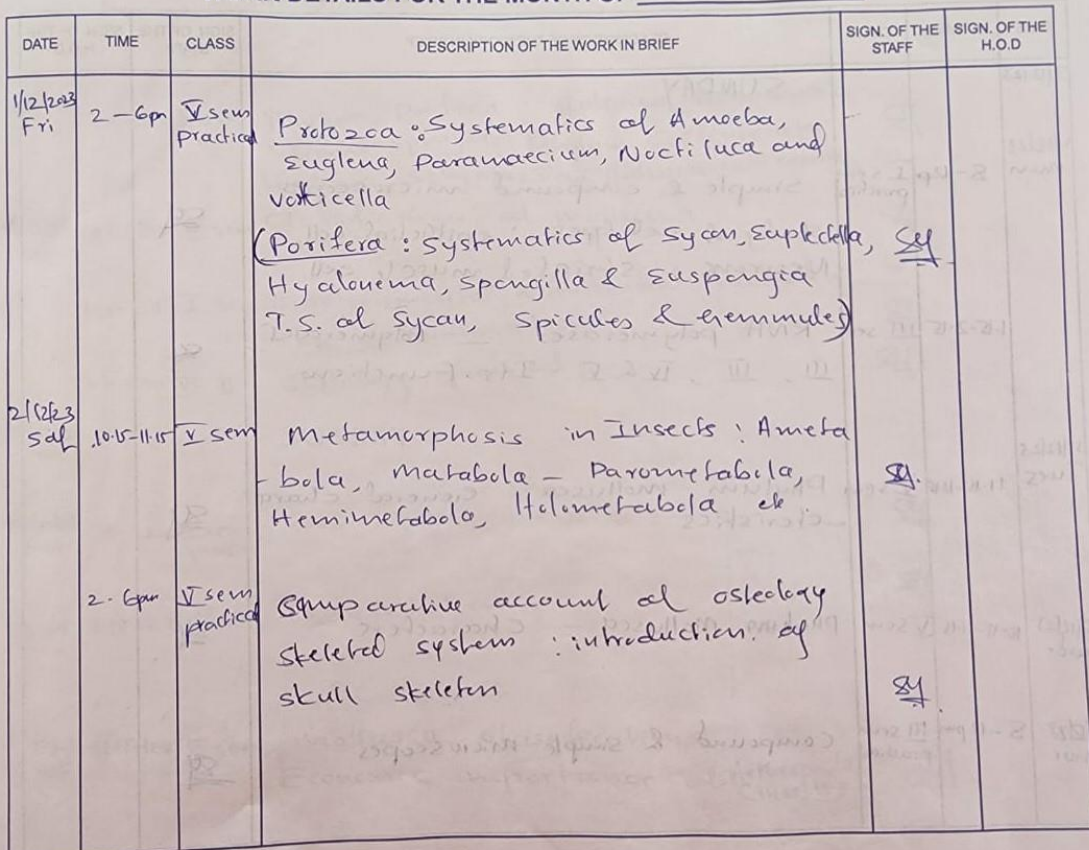 DETAILS FOR THE MONTH OF
DATE TIME CLASS DESCRIPTION OF THE WORK IN BRIEF SIGN. OF THE STAFF SIGN. OF THE H.O.D
1/12/2023 Fri 2-6pm V sem practical Protozoa : Systematics of Amoeba,
Euglena, Paramaecium, Noctiluca and
vorticella
(Porifera : Systematics of Sycon, Euplectella,
Hyalonema, Spongilla & Euspongia
T.S. of Sycan, Spicules & Gemmules)
2/12/23 Sat 10.15-11.15 V sem Metamorphosis in Insects : Ameta
-bola, Matabola - Parometabola,
Hemimetabola, Holometabola etc
2-6pm V sem practical Comparative account of osteology
skeletal system : introduction of
skull skeleton